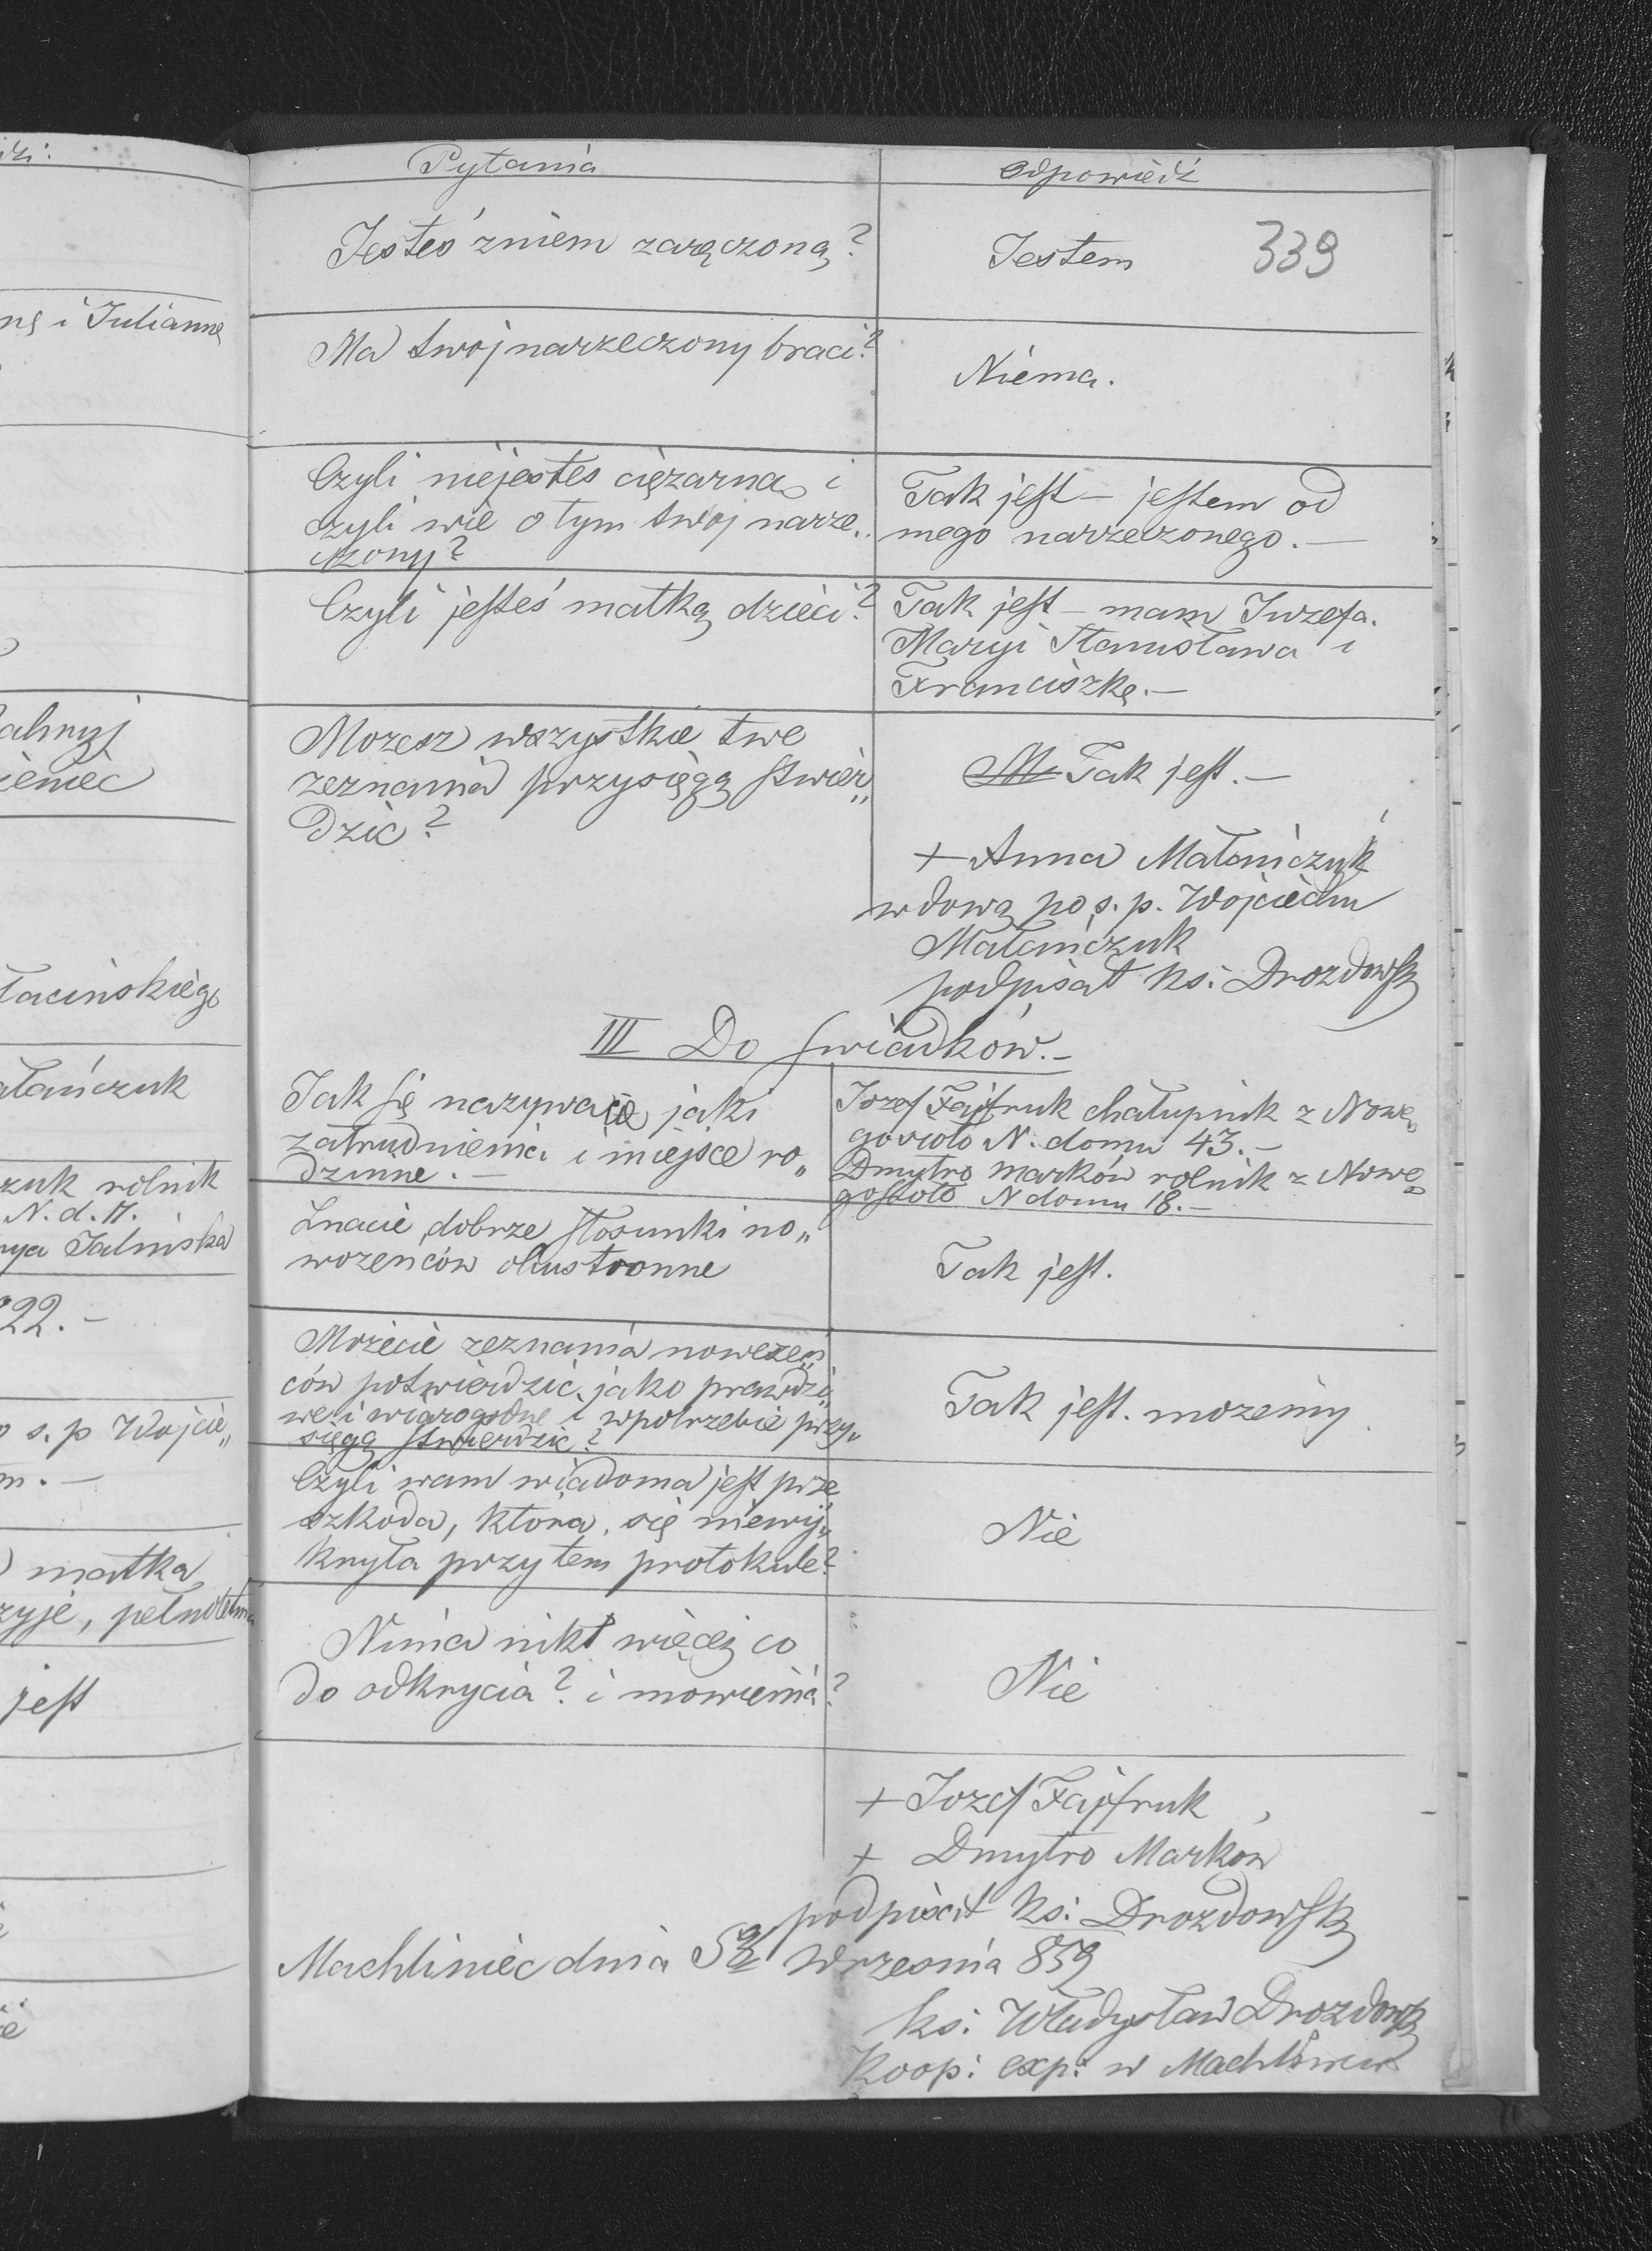 Pytania
Odpowiedź
339
Jesteś zniem zaręczoną?
Jestem
Ma twoj narzeczony braci?
Niema.
Czyli niejestes ciężarna i
czyli wie o tym twoj narze„
czony?
Tak jest – jestem od
mego narzeczonego. –
Czyli jesteś matką dzieci?
Tak jest – mam Juzefa.
Maryi Stanisława i
Franciszkę. –
Mozesz wszystkie twe
zeznania przysięgą stwier„
dzić?
Tak jest. –
+ Anna Matańczuk
wdowa po ś. p. Wojciechu
Matańczuk
podpisał ks: Drozdowski
III Do swiadków. –
Jak się nazywacie jaki
zatrudnienia i miejsce ro„
dzinne. –
Jozef Fajfruk chałupnik z Nowe„
gosioło N. domu 43. –
Dmytro Marków rolnik z Nowe„
gosioło N domu 18. –
Znacie dobrze stosunki no„
wozenców obustronne
Tak jest.
Możecie zeznania nowożeń„
ców potwierdzić jako prawdzi„
we i wiarogodne i wpotrzebie przy„
sięgą stwierdzić?
Tak jest. mozemy
Czyli wam wiadoma jest prze
szkoda, ktora się niewy„
kryła przy tem protokule?
Nie
Nima nikt więcej co
do odkrycia? i mowienia?
Nie
+ Jozef Fajfruk
+ Dmytro Marków
podpisał ks: Drozdowski
Machliniec dnia 5go wrzesnia 859
ks: Władysław Drozdowski
Koop: exp: w Machlińcu
nę i Juliannę
łacińskiego
atańczuk
zuk rolnik
N. d. 17.
rya Jalinska
822. –
o s. p Wojcie„
m. –
matka
żyje, pełnoletnia
jest